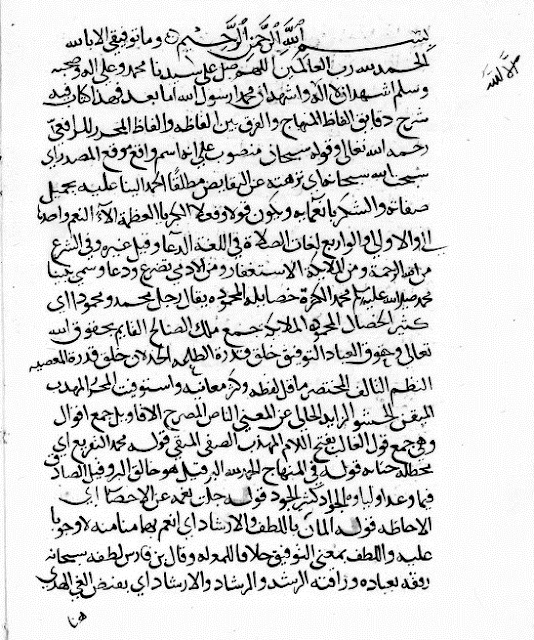 بسم الله الرحمن الرحيم وما توفيقي الا بالله
الحمد لله رب العالمين اللهم صل على سيدنا محمد وعلى اله وصحبه
وسلم اشهد ان لا اله الا الله واشهد ان محمد رسول الله اما بعد فهذا كتاب فيه
شرح دقايق الفاظ المنهاج والفرق بين الفاظه والفاظ المحرر للرافعي
رحمه الله تعالى قوله سبحاني منصوب على انه اسم واقع موقع المصدر اي
سبحت الله سبحانا اي نزهته عن النقايص مطلقا الحمد الثنا عليه بجميل
صفاته والشكر بانعامه ويكون قولا وفعلا الكبريا العظمة الآلاء النعم واحدها
الى والا والى والو اربع لغات الصلاة في اللغة الدعا وقيل غيره وفي الشرع
من الله الرحمة ومن الملايكة الاستغفار ومن الادمي تضرع ودعا وسمي نبينا
محمد صلى الله عليه وسلم محمد لكثرة خصاله المحمودة يقال رجل محمد ومحمود اي
كثير الخصال المحمودة الملايكة جمع ملك الصالح القايم بحقوق الله
تعالى وحقوق العباد التوفيق خلق قدرة الطاعة الخذلان خلق قدرة المعصيه
النظم التاليف المختصر ما قل لفظه وكثر معانيه واستوفيت المحرر المهذب
المتقن الحشو الزايد الخالي عن المعنى الناص المصرح الاقاويل جمع اقوال
وهي جمع قول اللباب بفتح اللام المهذب الصفي المنقى قوله محمد
قوله في المنهاج الحمد لله البر قيل هو خالق البر وقيل الصادق
فيما وعد اولياه الجواد كثير الجود قوله جلت نعمه عن الاحصا اي
الاحاطه قوله المان باللطف والارشاد اي انعم بهما منا منه لا وجوبا
عليه واللطف بمعنى التوفيق خلافا للمعتزله وقال بن فارس لطفه سبحانه
رفقه بعباده ورافته الرشد والرشاد والارشاد اي نقيض الغي الهدى
هنا